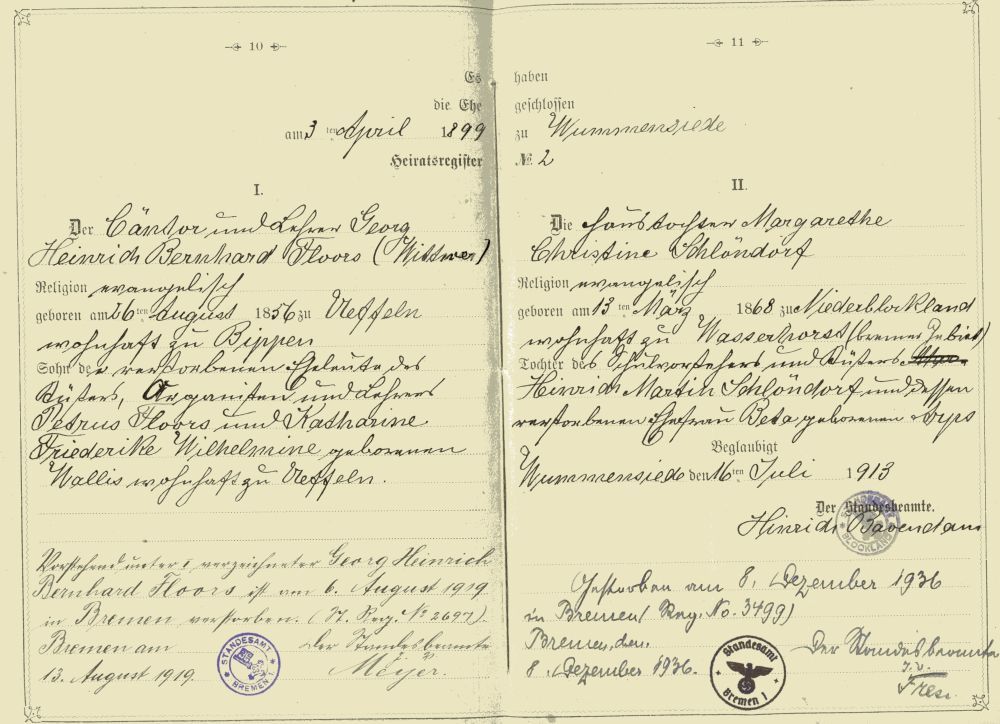 10
Es
die Ehe
am 3ten April 1899
Heiratsregister
I.
Der Cantor und Lehrer Georg
Heinrich Bernhard Floors (Wittwer)
Religion evangelisch
geboren am 26ten August 1856 zu Ueffeln
wohnhaft zu Bippen
Sohn der verstorbenen Eheleute des
Küsters, Organisten und Lehrers
Petrus Floors und Katharine
Friederike Wilhelmine geborenen
Wallis wohnhaft zu Ueffeln.
Vorstehend unter I verzeichneter Georg Heinrich
Bernhard Floors ist am 6. August 1919
in Bremen verstorben. (St. Reg. No 2697).
Bremen am Der Standesbeamte
13. August 1919. Meyer.
STANDESAMT
BREMEN 1
11
haben
geschlossen
zu Wummensiede
No. 2
II.
Die Haustochter Margarethe
Christine Schlöndorf
Religion evangelisch
geboren am 13ten März 1868 zu Niederblockland
wohnhaft zu Wasserhorst (bremer Gebiet)
Tochter des Schulvorstehers und Küsters
Hinrich Martin Schlöndorf und dessen
verstorbenen Ehefrau Beta geborenen
Beglaubigt
Wummensiede den 16ten Juli 1913
Der Standesbeamte.
Hinrich Bavendam
STANDESAMT
BLOCKLAND
Gestorben am 8. Dezember 1936
in Bremen (Reg. No. 3499)
Bremen, den Der Standesbeamte
8. Dezember 1936. I.V.
Standesamt
Bremen 1